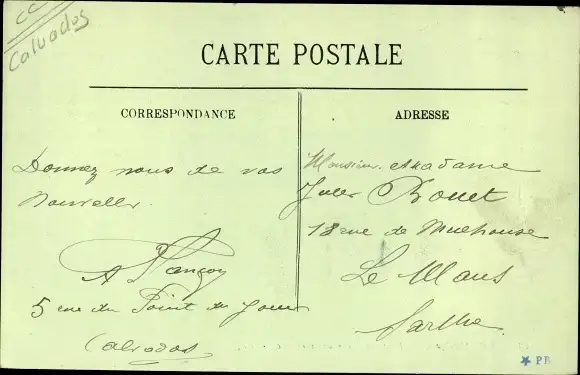 CC
Calvados
CARTE POSTALE
CORRESPONDANCE
ADRESSE
Donnez nous de vos
nouvelles.
5 rue du Point du Jour
Calvados
Monsieur & Madame
Jules Bouet
18 rue de Mulhouse
Le Mans
Sarthe
PB